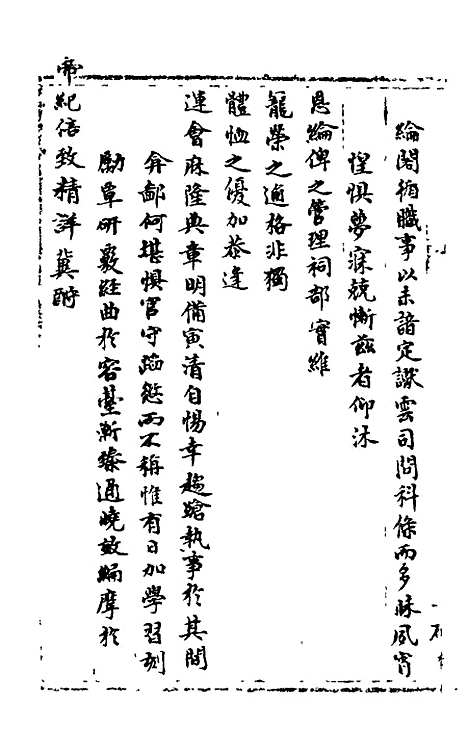 綸閣循職事以未諳定讞雲司問科條而多昧夙宵
惶惧夢寐兢慚茲者仰沐
恩綸俾之管理祠部實維
寵榮之逾格非獨
體恤之優加恭逢
運會庥隆典章明備寅清自惕幸趨蹌執事於其間
弇鄙何堪惧官守蹈愆而不稱惟有日加學習刻
勵覃研覈經曲於容臺漸臻通曉效編摩於
帝紀倍致精詳冀酬